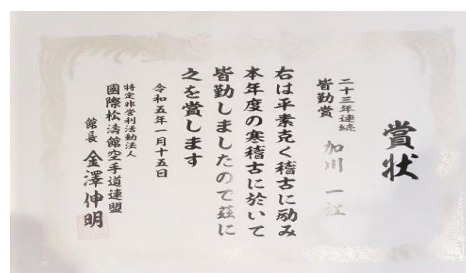 賞状
二十三年連続
皆勤賞
加川 一江
右は平素克く稽古に励み
本年度の寒稽古に於いて
皆勤しましたので茲に
之を賞します
令和五年一月十五日
特定非営利活動法人
國際松濤館空手道連盟
館長 金澤伸明